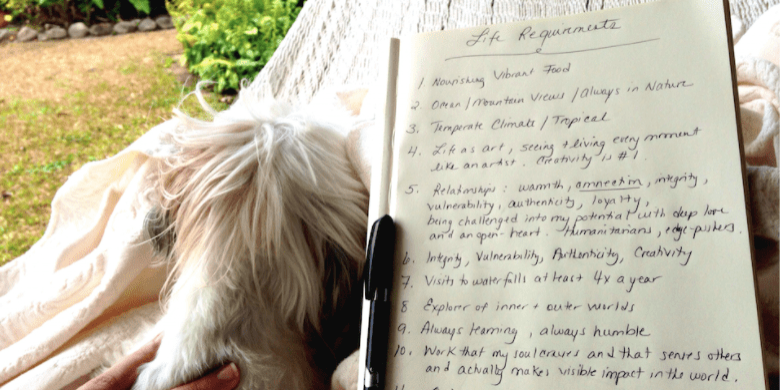 Life Requirements
1. Nourishing Vibrant Food
2. Ocean / Mountain Views / Always in Nature
3. Temperate Climate / Tropical
4. Life as art, seeing + living every moment
like an artist. Creativity is #1.
5. Relationships: warmth, connection, integrity,
vulnerability, authenticity, loyalty,
being challenged into my potential with deep love
and an open-heart. Humanitarians, edge-pushers.
6. Integrity, Vulnerability, Authenticity, Creativity
7. Visits to waterfalls at least 4x a year
8 Explorer of inner + outer worlds
9. Always learning, always humble
10. Work that my soul craves and that serves others
and actually makes visible impact in the world.